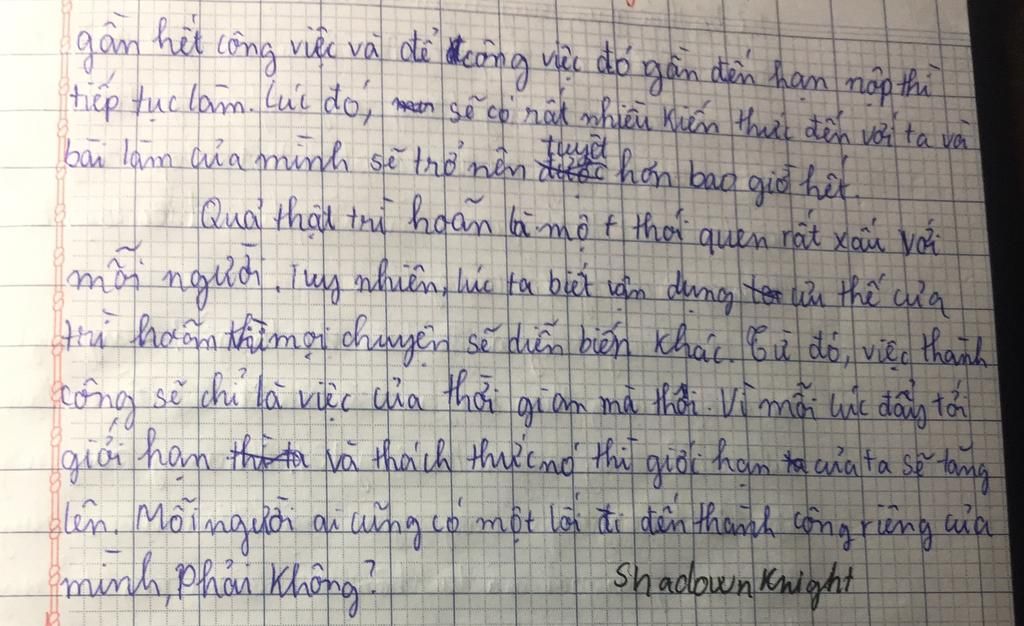 gần hết công việc và để công việc đó gần đến hạn nộp thì
tiếp tục làm. Lúc đó, sẽ có rất nhiều kiến thức đến với ta và
bài làm của mình sẽ trở nên tuyệt hơn bao giờ hết.
Quả thật trì hoãn là một thói quen rất xấu với
mỗi người. Tuy nhiên, lúc ta biết vận dụng ưu thế của
trì hoãn thì mọi chuyện sẽ diễn biến khác. Từ đó, việc thành
công sẽ chỉ là việc của thời gian mà thôi. Vì mỗi lúc đẩy tới
giới hạn và thách thức nó thì giới hạn của ta sẽ tăng
lên. Mỗi người ai cũng có một lối đi đến thành công riêng của
mình, phải không? Shadown Knight